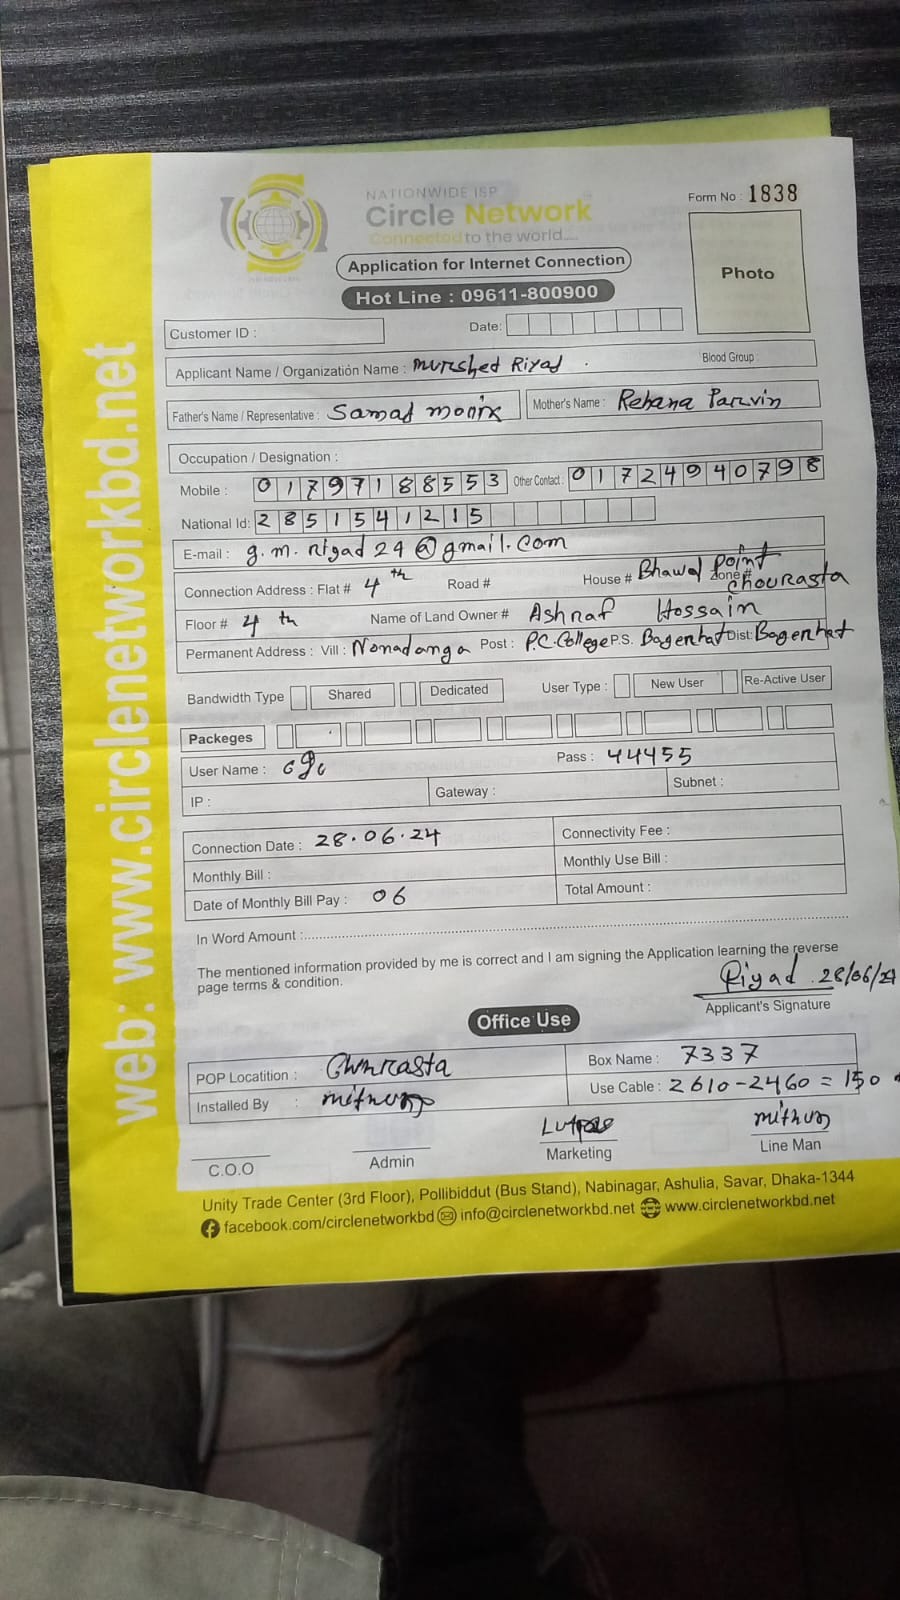 NATIONWIDE ISP
Circle Network
Connected to the world....
Form No : 1838
Application for Internet Connection
Photo
Hot Line : 09611-800900
Customer ID :
Date:
Applicant Name / Organization Name : Murshed Riyad
Blood Group :
Father's Name / Representative : Samad
Mother's Name : Rehana Parvin
Occupation / Designation :
Mobile : 01797188553 Other Contact : 01724940798
National Id: 2851541215
E-mail : g.m.riyad24@gmail.com
Connection Address : Flat # 4th Road # House # Bhawal Point Zone # Chourasta
Floor # 4 th Name of Land Owner # Ashraf Hossain
Permanent Address : Vill : Nonadanga Post : P.C. College P.S. Bagerhat Dist: Bagerhat
Bandwidth Type Shared Dedicated User Type : New User Re-Active User
Packeges
User Name : Pass : 44455
IP : Gateway : Subnet :
Connection Date : 28.06.24 Connectivity Fee :
Monthly Bill : Monthly Use Bill :
Date of Monthly Bill Pay : 06 Total Amount :
In Word Amount :
The mentioned information provided by me is correct and I am signing the Application learning the reverse
page terms & condition.
Riyad. 28/06/24
Applicant's Signature
Office Use
POP Locatition : Box Name : 7337
Installed By : mithun Use Cable : 2610-2460 = 150
mithun
C.O.O Admin Marketing Line Man
Unity Trade Center (3rd Floor), Pollibiddut (Bus Stand), Nabinagar, Ashulia, Savar, Dhaka-1344
facebook.com/circlenetworkbd info@circlenetworkbd.net www.circlenetworkbd.net
web: www.circlenetworkbd.net